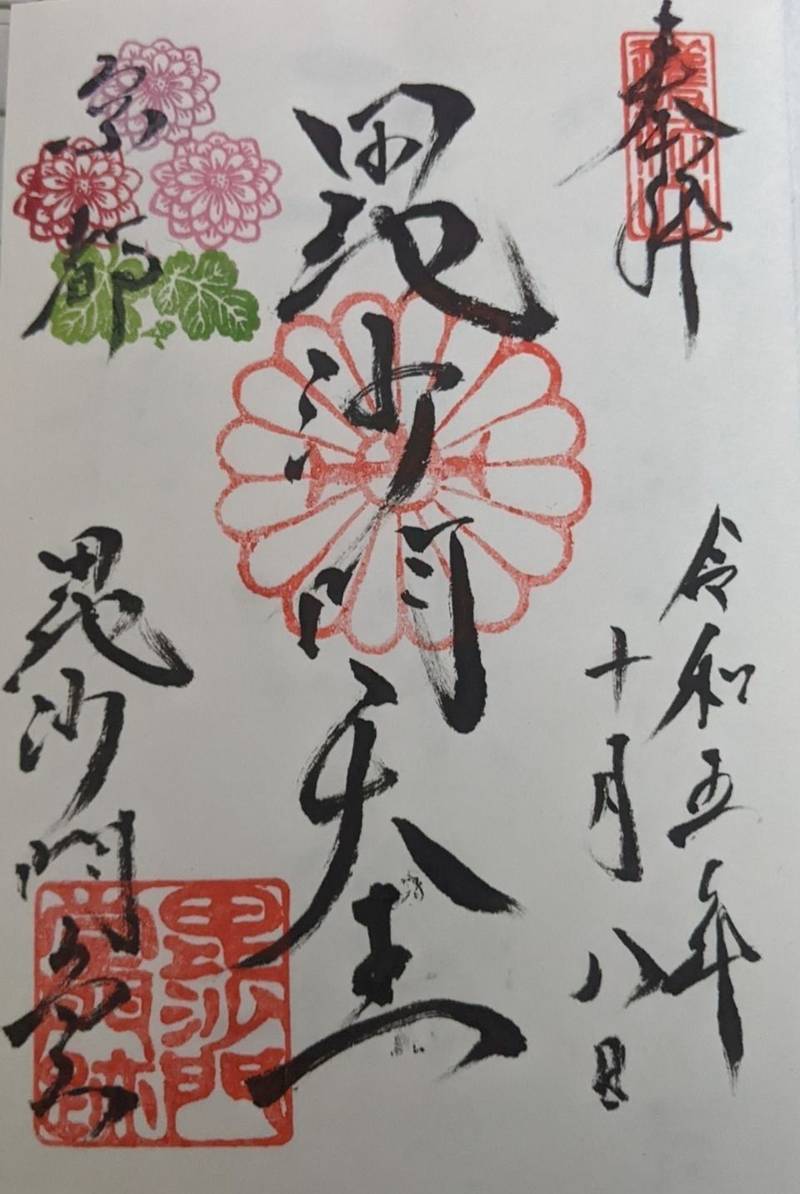 奉拝
令和五年
十月八日
毘沙門天
京都
毘沙門堂
毘沙門
堂門跡